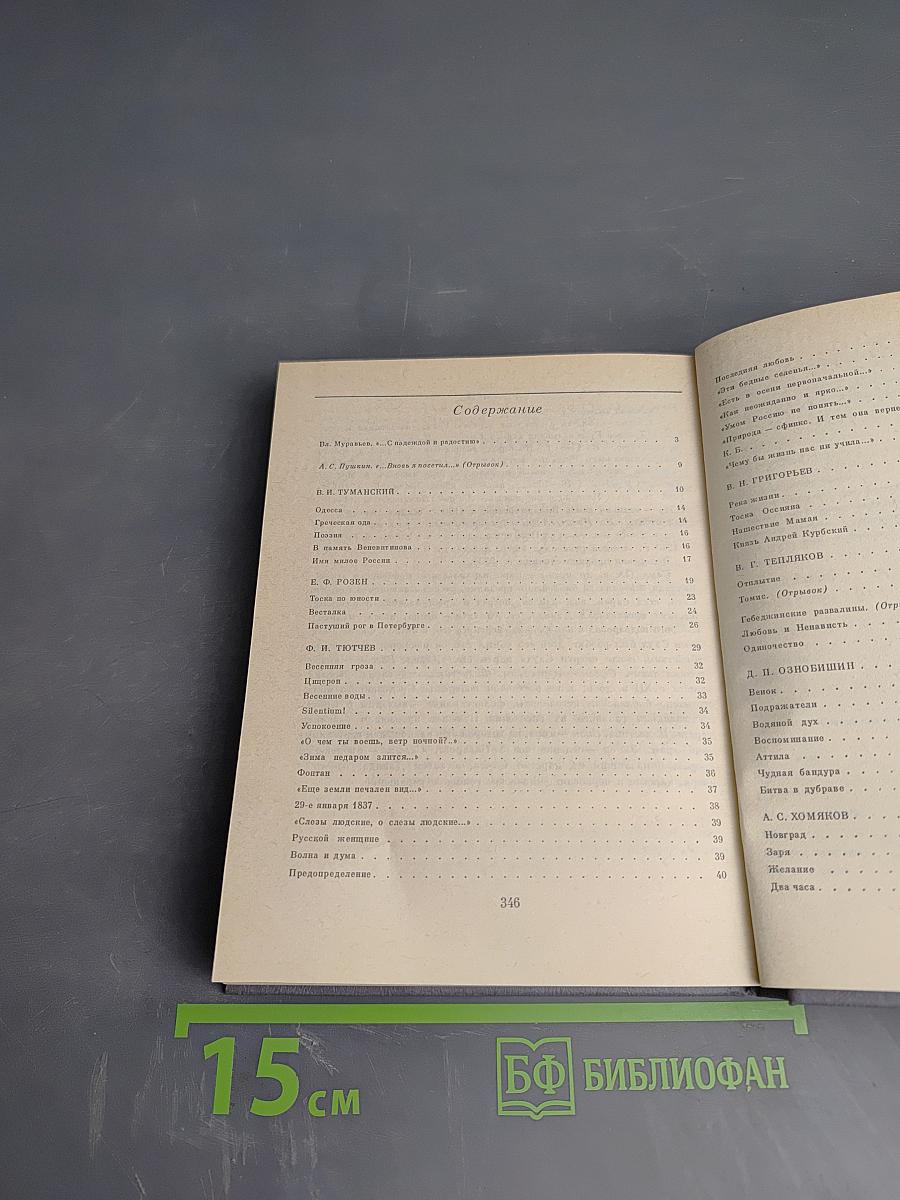 Содержание
Вл. Муравьев. «...С надеждой и радостию» . . . 3
А. С. Пушкин. «...Вновь я посетил...» (Отрывок) . . . 9
В. И. ТУМАНСКИЙ . . . 10
Одесса . . . 14
Греческая ода . . . 14
Поэзия . . . 16
В память Веневитинова . . . 16
Имя милое России . . . 17
Е. Ф. РОЗЕН . . . 19
Тоска по юности . . . 23
Весталка . . . 24
Пастуший рог в Петербурге . . . 26
Ф. И. ТЮТЧЕВ . . . 29
Весенняя гроза . . . 32
Цицерон . . . 32
Весенние воды . . . 33
Silentium! . . . 34
Успокоение . . . 34
«О чем ты воешь, ветр ночной?..» . . . 35
«Зима недаром злится...» . . . 35
Фонтан . . . 36
«Еще земли печален вид...» . . . 37
29-е января 1837 . . . 38
«Слезы людские, о слезы людские...» . . . 39
Русской женщине . . . 39
Волна и дума . . . 39
Предопределение . . . 40
346
Последняя любовь . . .
«Эти бедные селенья...» . . .
«Есть в осени первоначальной...» . . .
«Как неожиданно и ярко...» . . .
«Умом Россию не понять...» . . .
«Природа — сфинкс. И тем она верне
К. Б. . . .
«Чему бы жизнь нас ни учила...» . . .
В. Н. ГРИГОРЬЕВ . . .
Река жизни . . .
Тоска Оссияна . . .
Нашествие Мамая . . .
Князь Андрей Курбский . . .
В. Г. ТЕПЛЯКОВ . . .
Отплытие . . .
Томис. (Отрывок) . . .
Гебеджинские развалины. (Отр
Любовь и Ненависть . . .
Одиночество . . .
Д. П. ОЗНОБИШИН . . .
Венок . . .
Подражатели . . .
Водяной дух . . .
Воспоминание . . .
Аттила . . .
Чудная бандура . . .
Битва в дубраве . . .
А. С. ХОМЯКОВ . . .
Новград . . .
Заря . . .
Желание . . .
Два часа . . .
15 см
БФ БИБЛИОФАН